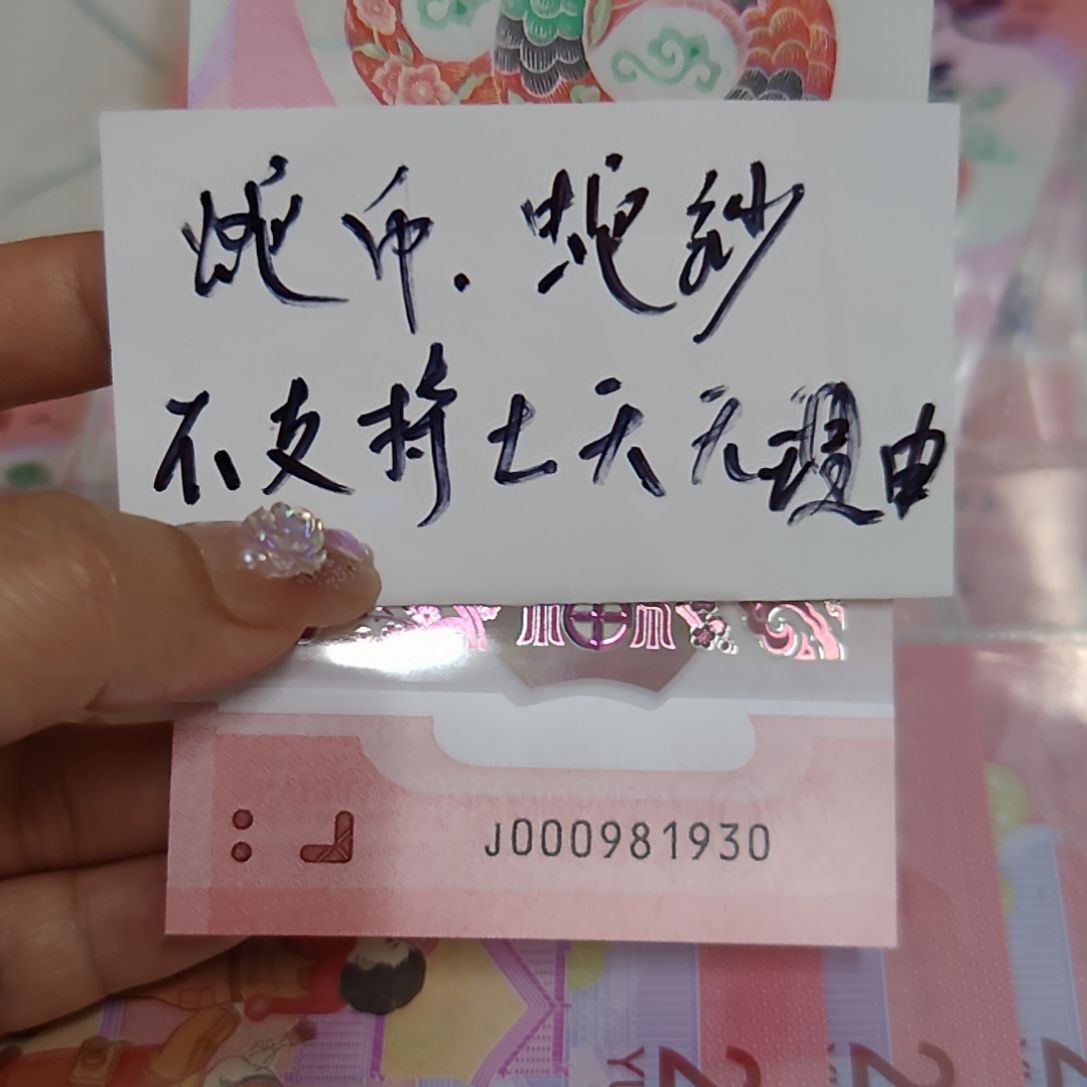 蛇币.蛇钞
不支持七天无理由
J000981930